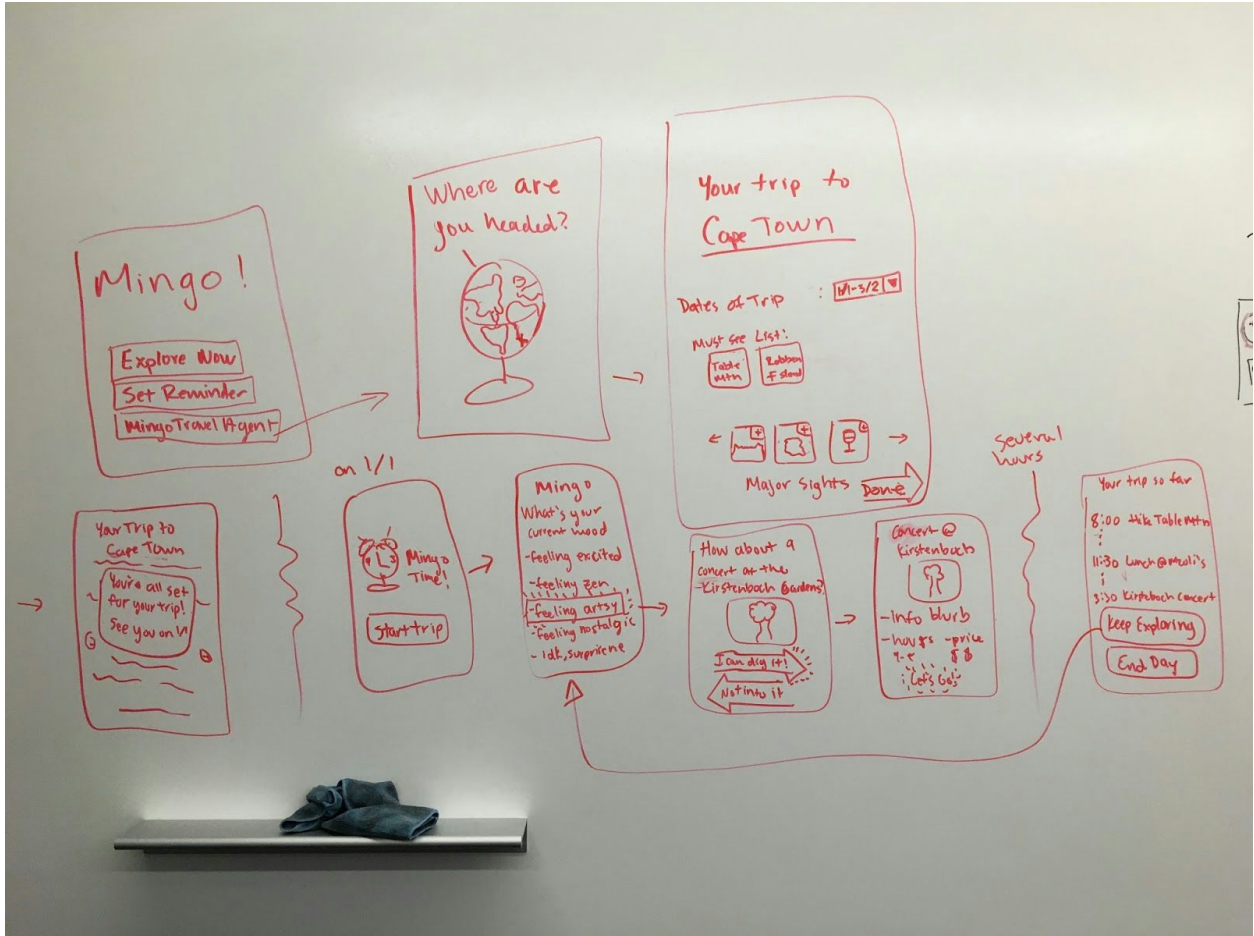 Mingo!
Explore Now
Set Reminder
Mingo Travel Agent
Where are
you headed?
Your trip to
Cape Town
Dates of Trip : 1/1-3/2
Must see List:
Table
Mtn
Robben
Island
Major Sights
Done
Your Trip to
Cape Town
You're all set
for your trip!
See you on 1/1
on 1/1
Mingo
Time!
Start trip
Mingo
What's your
current mood
-feeling excited
-feeling zen
-feeling artsy
-feeling nostalgic
- idk, surprise me
How about a
concert at the
Kirstenbach Gardens?
I can dig it!
Not into it
Concert @
Kirstenbach
-info blurb
-hours -price
9-e $$
Let's Go!
several
hours
Your trip so far
8:00 Hike Table Mtn
11:30 Lunch @
3:30 Kirstebach Concert
Keep Exploring
End Day